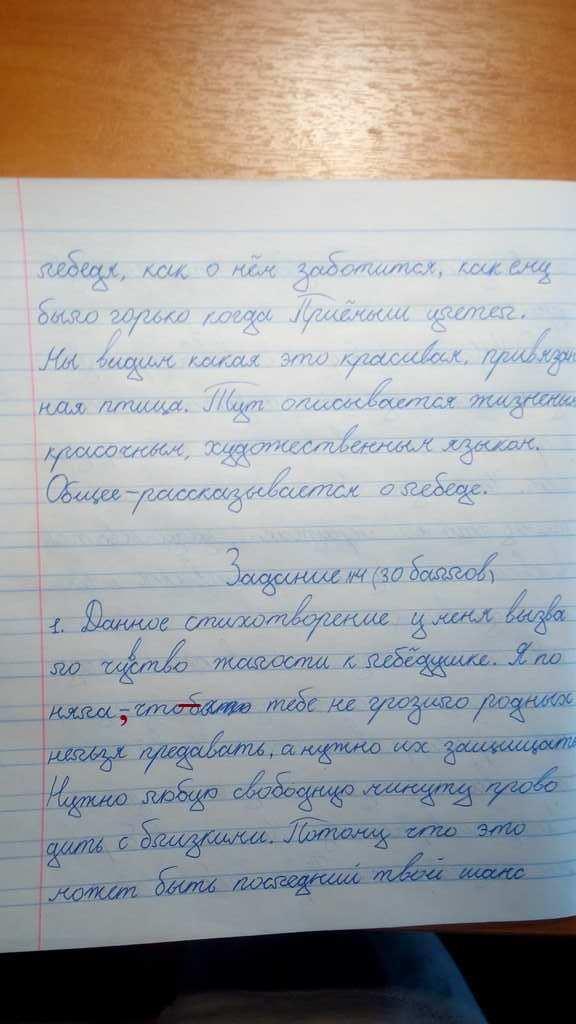 лебедя, как о нём заботится, как ему
было горько когда Приёмыш улетел.
Мы видим какая это красивая, привязан
ная птица. Тут описывается жизненным
красочным, художественным языком.
Общее-рассказывается о лебеде.
Задание №4 (30 баллов)
1. Данное стихотворение у меня вызва
ло чувство жалости к лебёдушке. Я по
няла, что бы тебе не грозило родных
нельзя предавать, а нужно их защищать
Нужно любую свободную минуту прово
дить с близкими. Потому что это
может быть последний твой шанс